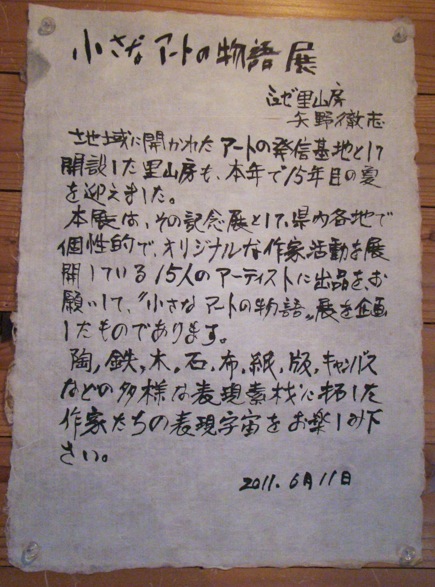 小さな アートの物語 展
里山房
矢野徹志
地域に開かれた アートの発信基地として
開設した里山房も、本年で15年目の夏
を迎えました。
本展は、その記念展として、県内各地で
個性的で、オリジナルな作家活動を展
開している 15人のアーティストに出品をお
願いして、〝小さな アートの物語〟展を企画
したものであります。
陶,鉄,木,石,布,紙,版,キャンバス
などの多様な表現素材に拓した
作家たちの表現宇宙をお楽しみ下
さい。
2011.6月11日